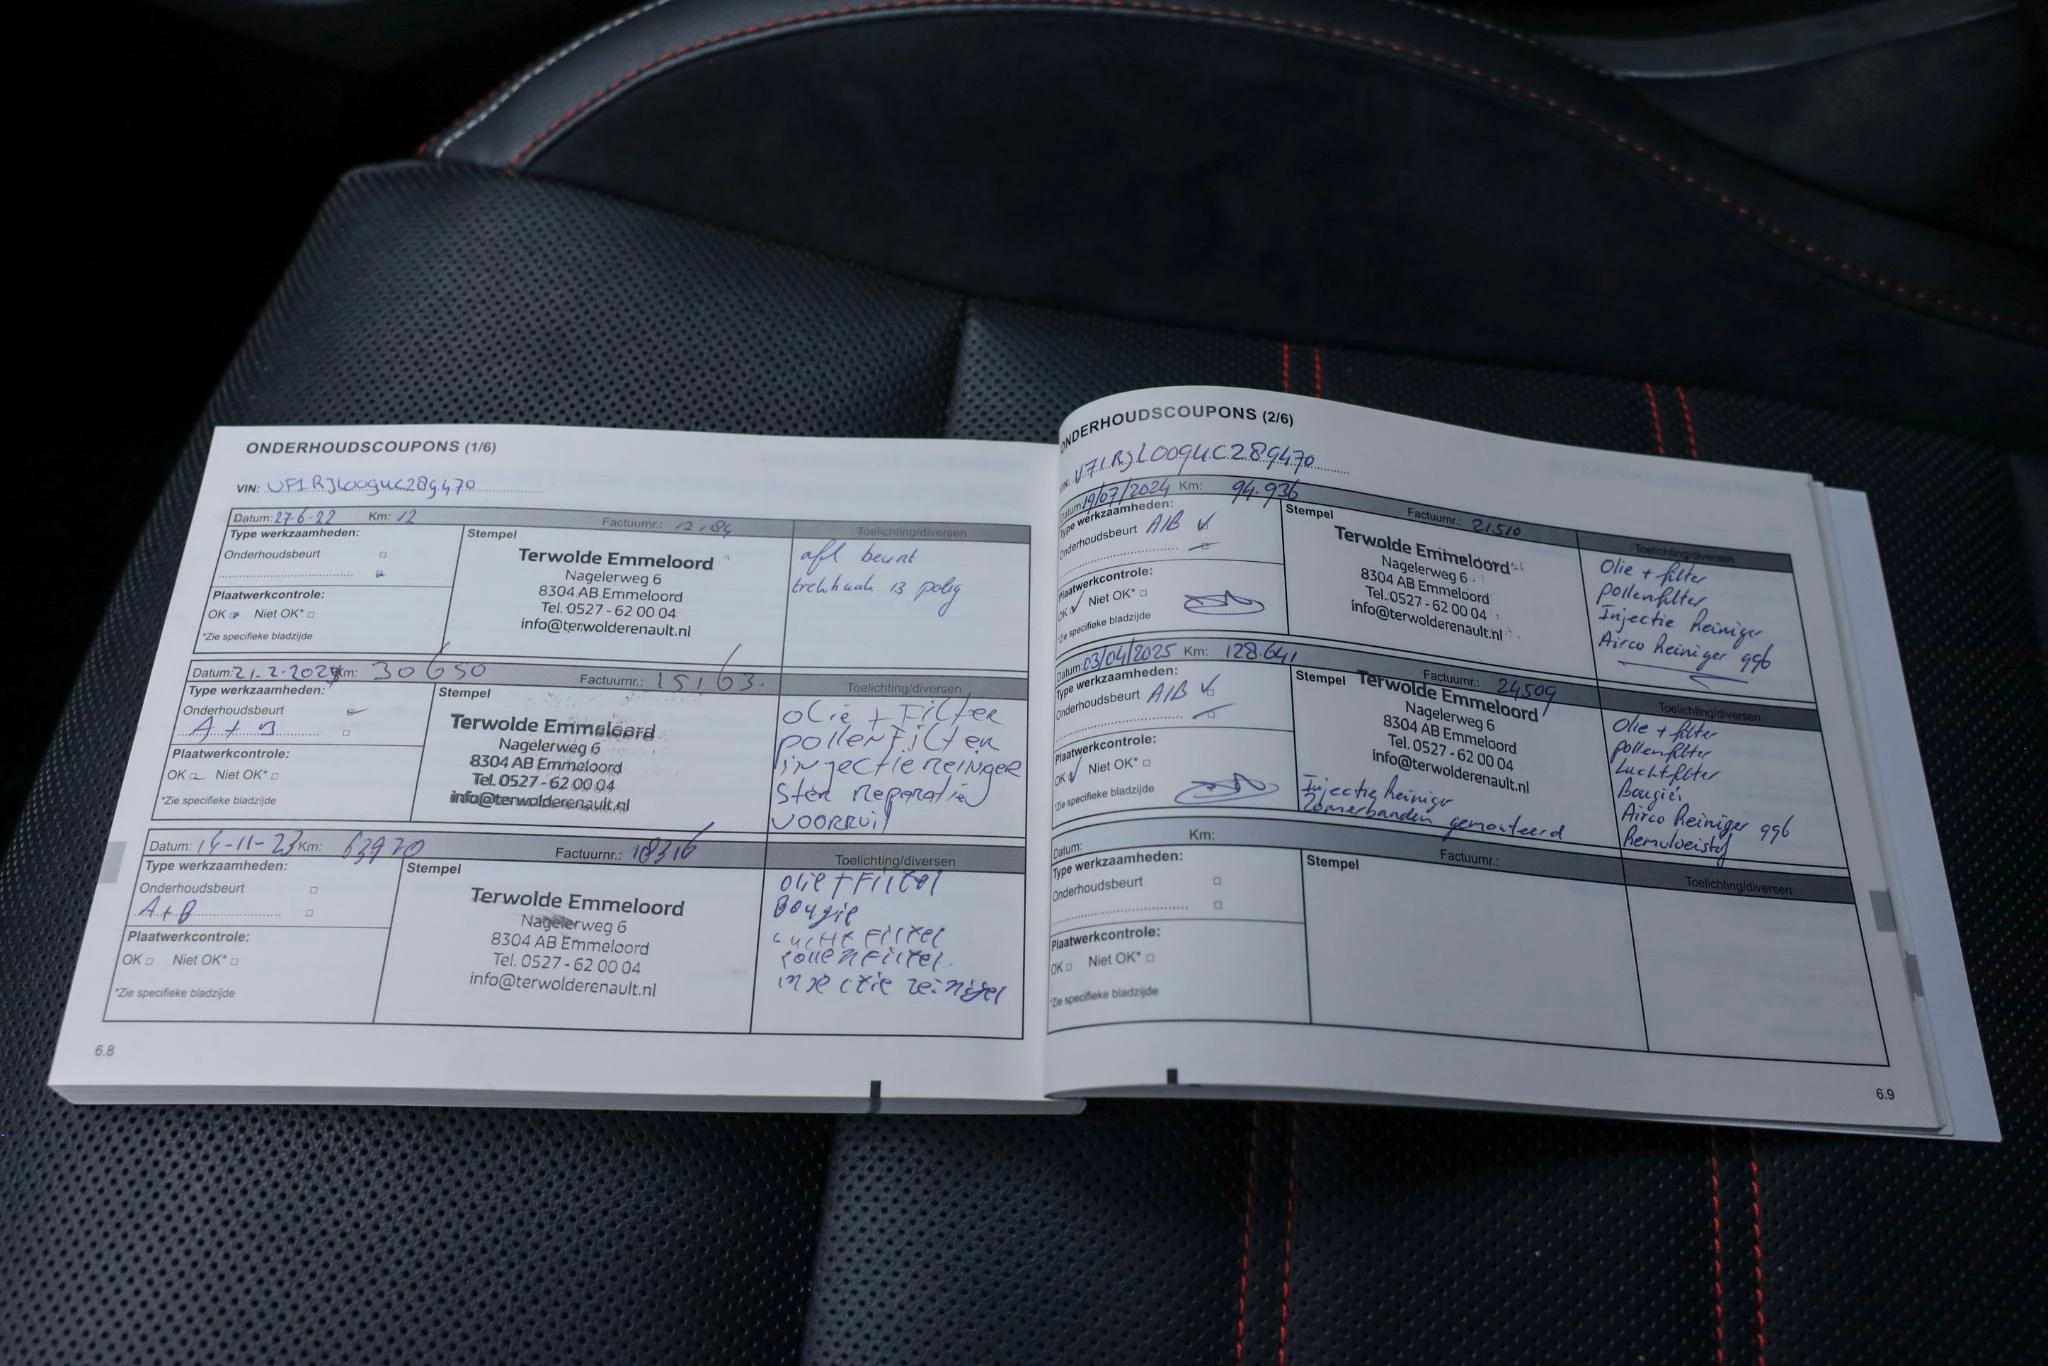 ONDERHOUDSCOUPONS (1/6)
VIN: VF1RJL009UC289470
Datum: 27-6-22 Km: 12 Factuurnr.: 12184 Toelichting/diversen
Type werkzaamheden:
Onderhoudsbeurt
Plaatwerkcontrole:
OK Niet OK*
*Zie specifieke bladzijde
Stempel
Terwolde Emmeloord
Nagelerweg 6
8304 AB Emmeloord
Tel. 0527 - 62 00 04
info@terwolderenault.nl
afl beurt
trekhaak 13 polig
Datum: 21.2.202 Km: 30650 Factuurnr.: 15163. Toelichting/diversen
Type werkzaamheden:
Onderhoudsbeurt
A + B
Plaatwerkcontrole:
OK Niet OK*
*Zie specifieke bladzijde
Stempel
Terwolde Emmeloord
Nagelerweg 6
8304 AB Emmeloord
Tel. 0527 - 62 00 04
info@terwolderenault.nl
olie + Filter
pollenFilter
injectiereinger
Ster reparatie
voorruit
Datum: 14-11-23 Km: 63970 Factuurnr.: 18316 Toelichting/diversen
Type werkzaamheden:
Onderhoudsbeurt
A+B
Plaatwerkcontrole:
OK Niet OK*
*Zie specifieke bladzijde
Stempel
Terwolde Emmeloord
Nagelerweg 6
8304 AB Emmeloord
Tel. 0527 - 62 00 04
info@terwolderenault.nl
olie + Filtel
Bougie
Lucht Filtel
pollenFiltel.
injectie reinigel
6.8
ONDERHOUDSCOUPONS (2/6)
VIN: VF1RJL009UC289470
Datum: 19/07/2024 Km: 94.936 Factuurnr.: 21510 Toelichting/diversen
Type werkzaamheden:
Onderhoudsbeurt A/B
Plaatwerkcontrole:
OK Niet OK*
*Zie specifieke bladzijde
Stempel
Terwolde Emmeloord
Nagelerweg 6
8304 AB Emmeloord
Tel. 0527 - 62 00 04
info@terwolderenault.nl
Olie + filter
pollenfilter
Injectie Reiniger
Airco Reiniger 996
Datum: 03/04/2025 Km: 128.641 Factuurnr.: 24509 Toelichting/diversen
Type werkzaamheden:
Onderhoudsbeurt A/B
Plaatwerkcontrole:
OK Niet OK*
*Zie specifieke bladzijde
Stempel
Terwolde Emmeloord
Nagelerweg 6
8304 AB Emmeloord
Tel. 0527 - 62 00 04
info@terwolderenault.nl
Injectie Reiniger
Zomerbanden gemonteerd
Olie + filter
pollenfilter
Luchtfilter
Bougies
Airco Reiniger 996
Remvloeistof
Datum: Km: Factuurnr.: Toelichting/diversen
Type werkzaamheden:
Onderhoudsbeurt
Plaatwerkcontrole:
OK Niet OK*
*Zie specifieke bladzijde
Stempel
6.9